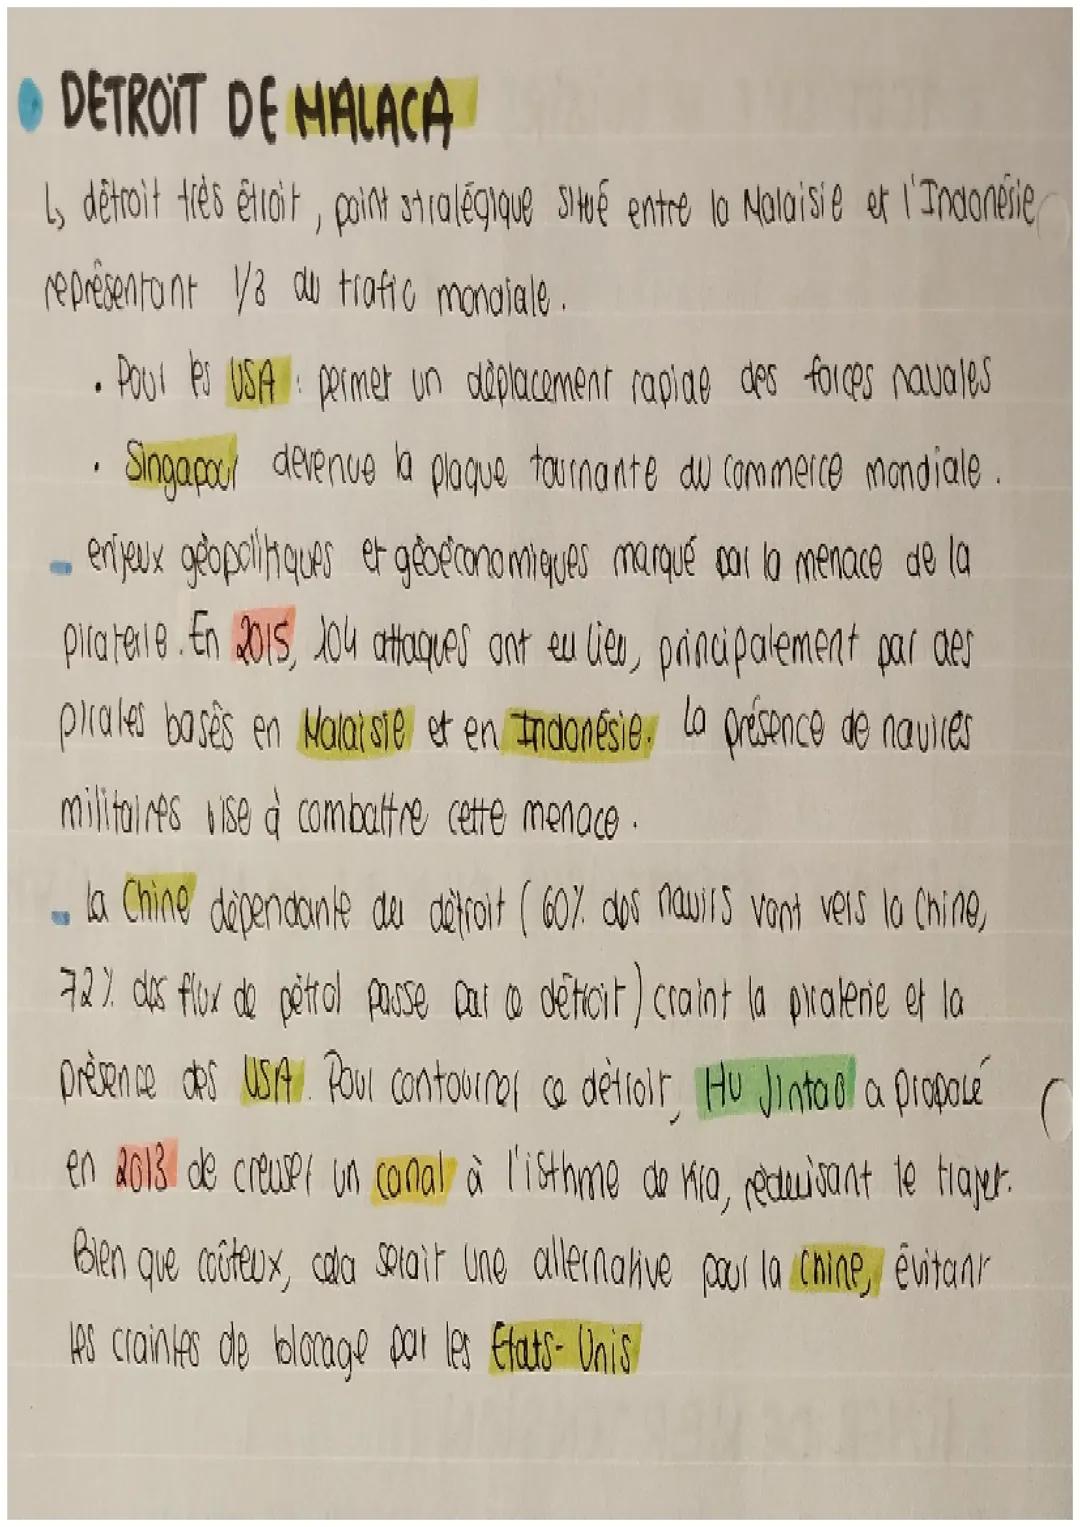 DETROIT DE MALACA
↳ détroit très étroit, point stratégique situé entre la Malaisie et l'Indonésie
représentant 1/3 du trafic mondiale.
• Pour les USA : permet un déplacement rapide des forces navales
• Singapour devenue la plaque tournante du commerce mondiale.
- enjeux géopolitiques et géoéconomiques marqué par la menace de la
piraterie. En 2015, 104 attaques ont eu lieu, principalement par des
pirates basés en Malaisie et en Indonésie. La présence de navires
militaires vise à combattre cette menace.
- La Chine dépendante du détroit (60% des navirs vont vers la Chine,
72% des flux de pétrol passe par ce détroit) craint la piraterie et la
présence des USA. Pour contourner ce détroit, Hu Jintao a proposé
en 2013 de creuser un canal à l'isthme de Kra, réduisant le trajet.
Bien que coûteux, cela serait une alternative pour la Chine, évitant
les craintes de blocage par les Etats-Unis